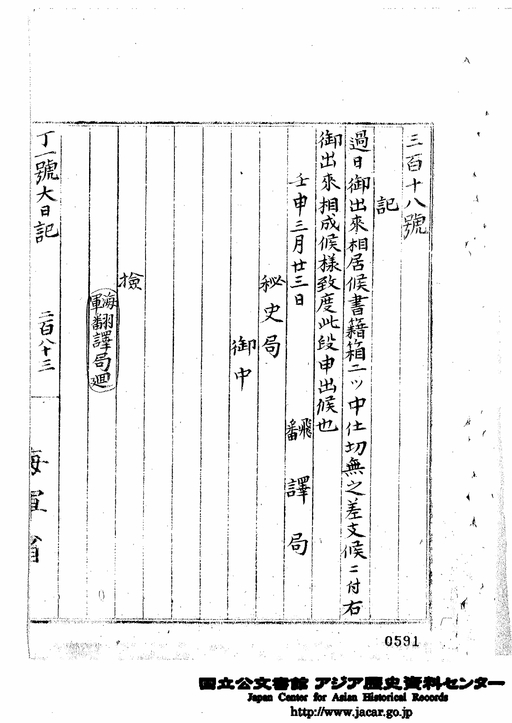 三百十八號
記
過日御出來相居候書籍箱二ッ中仕切無之差支候ニ付右
御出來相成候樣致度此段申出候也
壬申三月廿三日
飜譯局
秘史局
御中
檢
海軍翻譯局廻
丁一號大日記
二百八十三
海軍省
0591
国立公文書館 アジア歴史資料センター
Japan Center for Asian Historical Records
http://www.jacar.go.jp